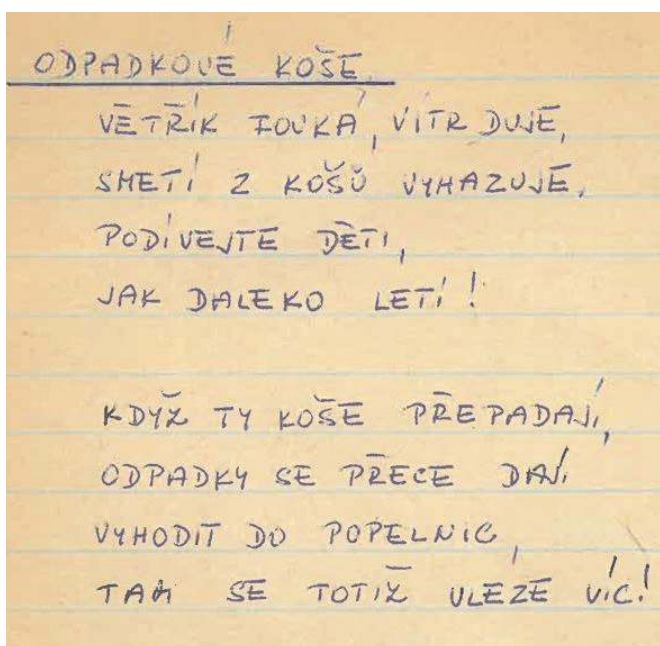 ODPADKOVÉ KOŠE
VĚTŘÍK FOUKÁ, VÍTR DUJE,
SMETÍ Z KOŠŮ VYHAZUJE.
PODÍVEJTE DĚTI,
JAK DALEKO LETÍ!
KDYŽ TY KOŠE PŘEPADAJÍ,
ODPADKY SE PŘECE DAJÍ
VYHODIT DO POPELNIC,
TAM SE TOTIŽ VLEZE VÍC!